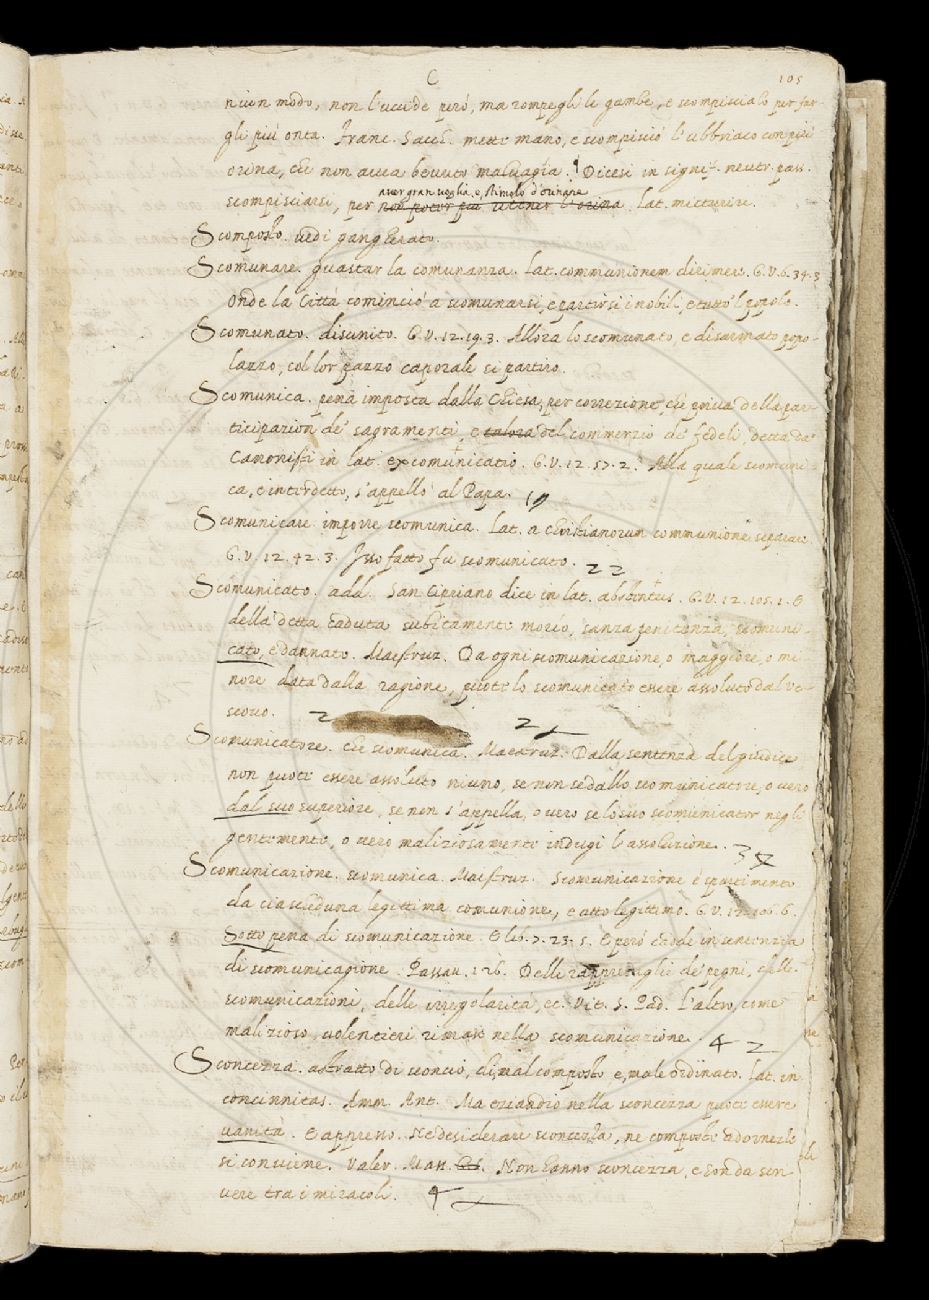 C
105
niun modo, non l'uccide però, ma rompegli le gambe, e scompiscialo per far-
gli più onta. Franc. Sacch. mette mano, e scompisciò l'ubbriaco con più
orina, che non avea bevuto malvagia. Dicesi in signi. neutr. pass.
aver gran voglia, o, stimolo d'orinare
scompisciarsi, per non poter più ritener l'orina. Lat. micturire.
Scomposto. vedi gangherato.
Scomunare. guastar la comunanza. Lat. communionem dirimere. G.V. 6. 34. 3
Onde la Città cominciò a scomunarsi, e partirsi i nobili, e tutto 'l popolo.
Scomunato. disunito. G.V. 12. 19. 3. Allora lo scomunato, e disarmato popo-
lazzo, col lor pazzo caporale si partiro.
Scomunica. pena imposta dalla Chiesa, per correzione, che priva della par-
ticipazion de' sagramenti, e talora del commerzio de' fedeli, detta da'
Canonisti in lat. excomunicatio. G.V. 12. 57. 2. Alla quale scomuni
ca, e interdetto, s'appellò al Papa.
Scomunicare imporre scomunica. Lat. a christianorum communione separare
G.V. 12. 42. 3. Isso fatto fu scomunicato. 22
Scomunicato. add. San Cipriano dice in lat. abstentus. G.V. 12. 105. 1. E
della detta caduta subitamente morio, sanza penitenza, scomuni-
cato, e dannato. Maestruz. Da ogni scomunicazione, o maggiore, o mi
nore data dalla ragione, puote lo scomunicato essere assoluto dal ve-
scovo. 2 2
Scomunicatore. che scomunica. Maestruz. Dalla sentenza del giudice
non puote essere assoluto niuno, se non se dallo scomunicatore, o vero
dal suo superiore, se non s'appella, o vero se lo suo scomunicator negli
gentemente, o vero maliziosamente indugi l'assoluzione. 32
Scomunicazione. scomunica. Maestruz. Scomunicazione è spartimento
da ciascheduna legittima comunione, e atto legittimo. G.V. 12. 106. 6.
Sotto pena di scomunicazione. E lib. 7. 23. 5. E però cadde in sentenzia
di scomunicagione. Passav. 126. Delle rappresaglie de' pegni, delle
scomunicazioni, delle irregolarità, ec. Vit. S. Pad. L'altro, come
malizioso, volentieri rimase nella scomunicazione. 4 2
Sconcezza. astratto di sconcio, di, mal composto e, male ordinato. Lat. in
concinnitas. Amm. Ant. Ma eziandio nella sconcezza puote essere
vanità. E appresso. Ne desiderare sconcezza, ne composte adornezze
si conviene. Valer. Mass. Non hanno sconcezza, e son da scri
vere tra i miracoli. 4